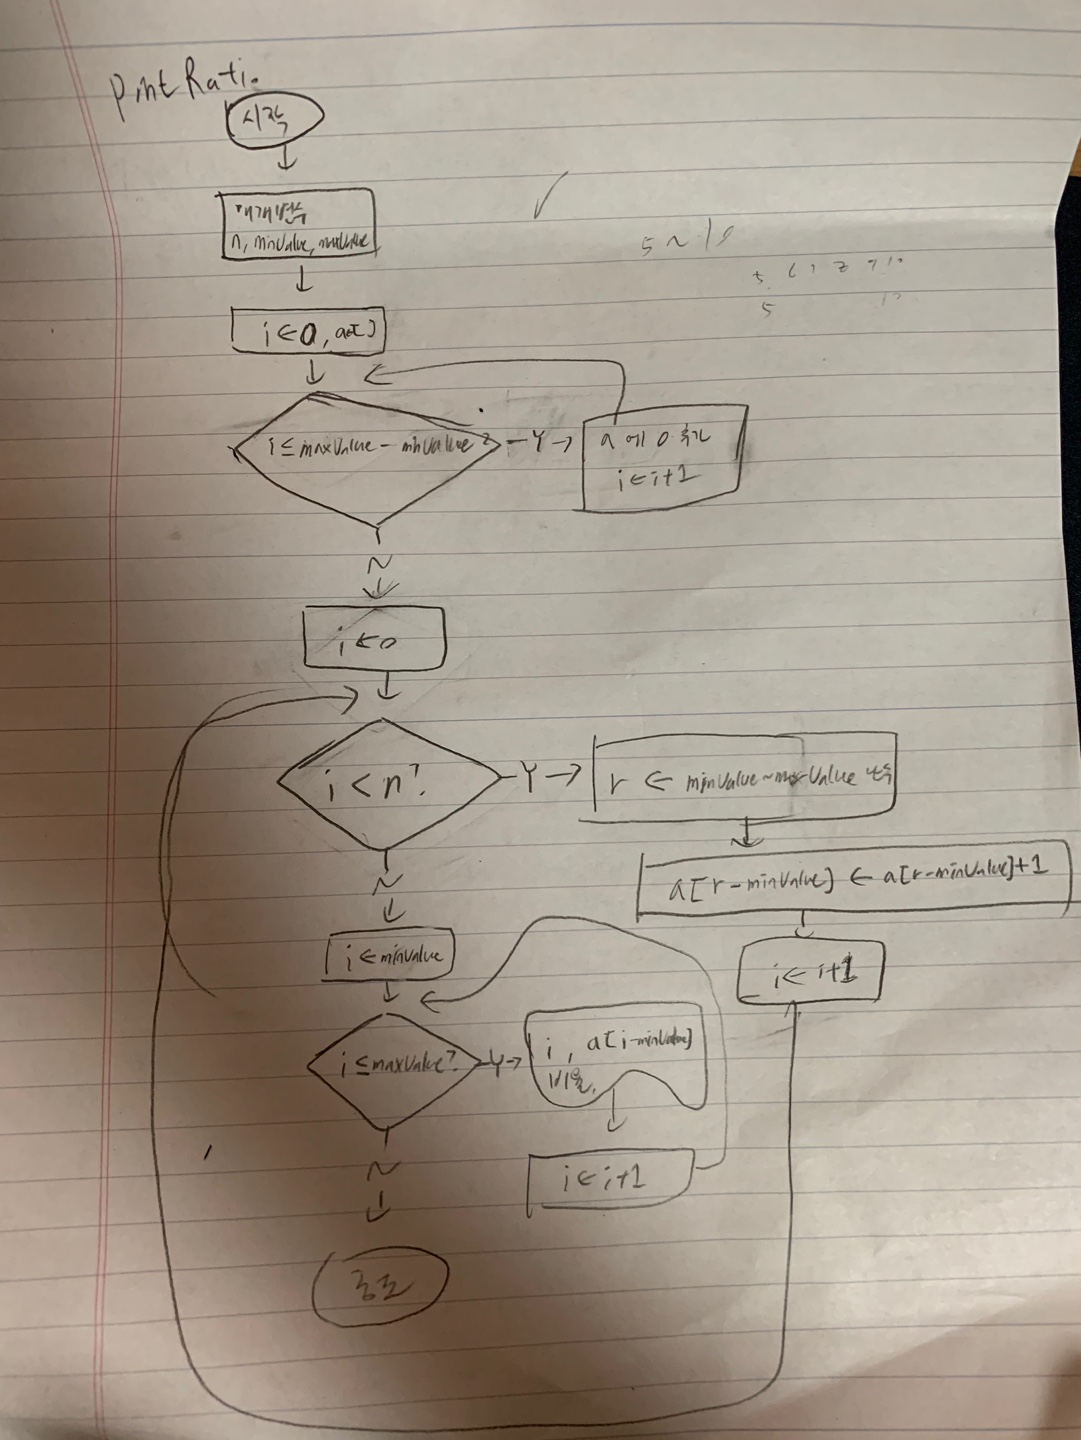 PrintRatio
시작
매개변수
n, minValue, maxValue
i ← 0, a[]
i ≤ maxValue - minValue?
Y
a 에 0 추가
i ← i+1
N
i ← 0
i < n?
Y
r ← minValue ~ maxValue 난수
a[r-minValue] ← a[r-minValue]+1
i ← i+1
N
i ← minValue
i ≤ maxValue?
Y
i, a[i-minValue]
비율
i ← i+1
N
종료
5 ~ 10
5